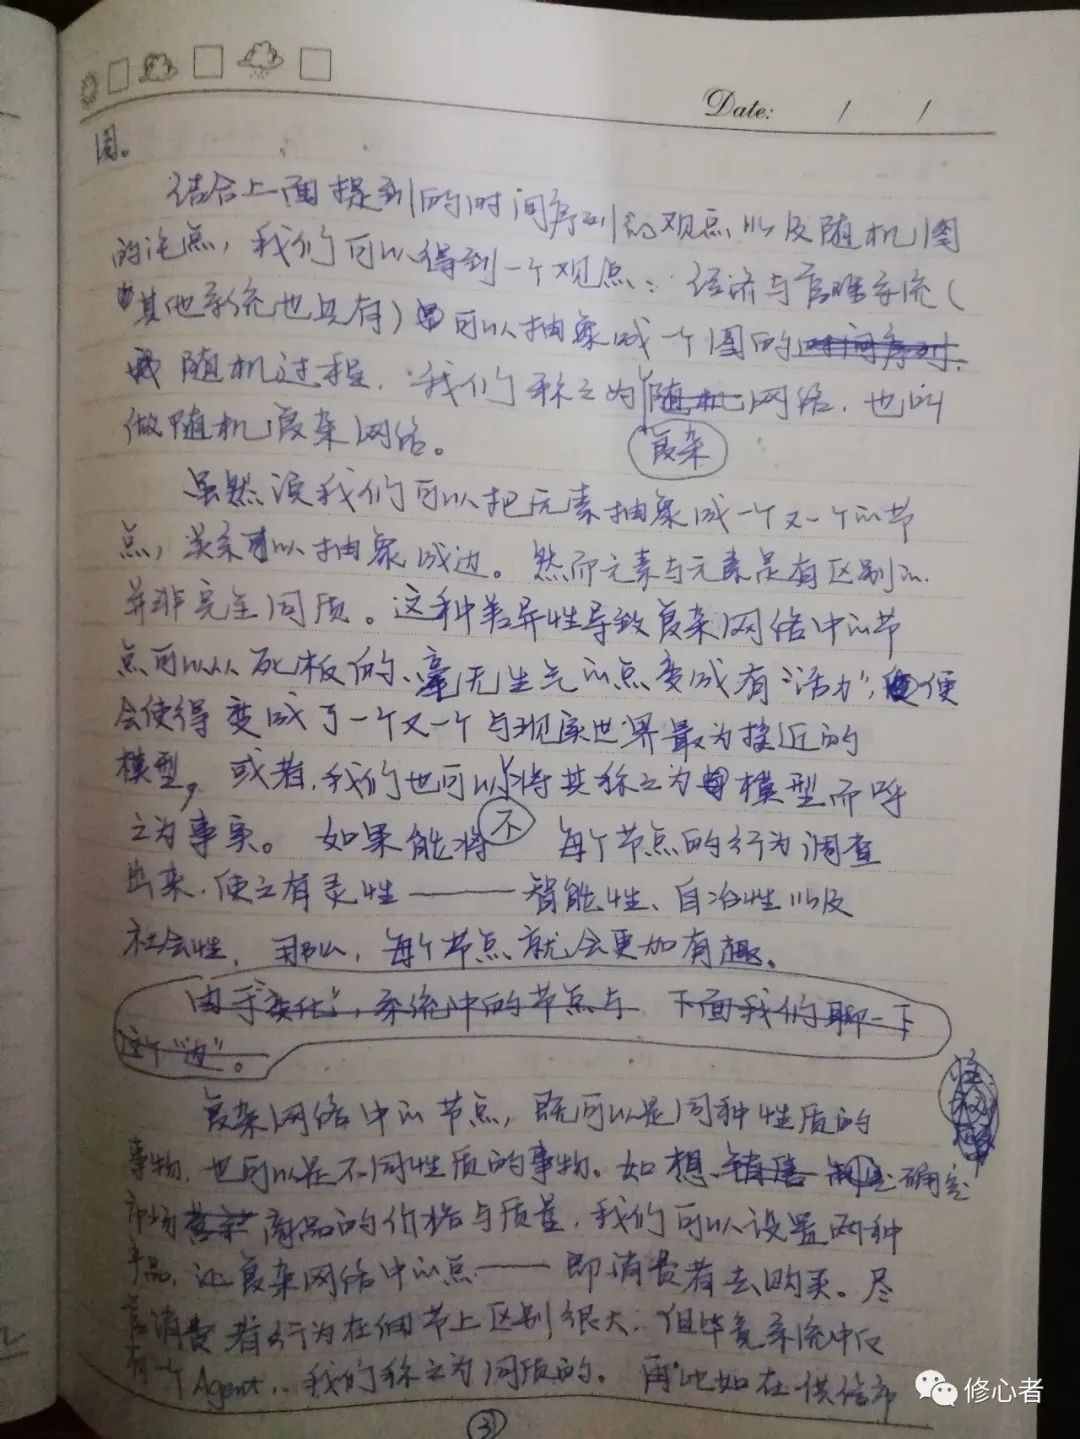 Date: / /
图。
结合上面提到的时间序列的观点以及随机图
的论点，我们可以得到一个观点：经济与管理系统（
其他系统也具有）可以抽象成一个图的时间序列.
随机过程. 我们称之为随机网络. 也叫
复杂
做随机复杂网络。
虽然说我们可以把元素抽象成一个又一个的节
点，关系可以抽象成边。然而元素与元素是有区别的.
并非完全同质。这种差异性导致复杂网络中的节
点可以从死板的、毫无生气的点变成有“活力”，便
会使得变成了一个又一个与现实世界最为接近的
模型，或者，我们也可以将其称之为模型而呼
不
之为事实。如果能将每个节点的行为调查
出来，使之有灵性——智能性、自治性以及
社会性，那么，每个节点就会更加有趣。
由于变化，系统中的节点与 下面我们聊一下
这个“边”。
复杂网络中的节点，既可以是同种性质的
事物，也可以是不同性质的事物。如想 销售 确定
市场 商品的价格与质量，我们可以设置两种
产品，让复杂网络中的点——即消费者去购买。尽
管消费者行为在细节上区别很大，但毕竟系统中只
有一个Agent，我们称之为同质的。再比如在供给市
3
修心者